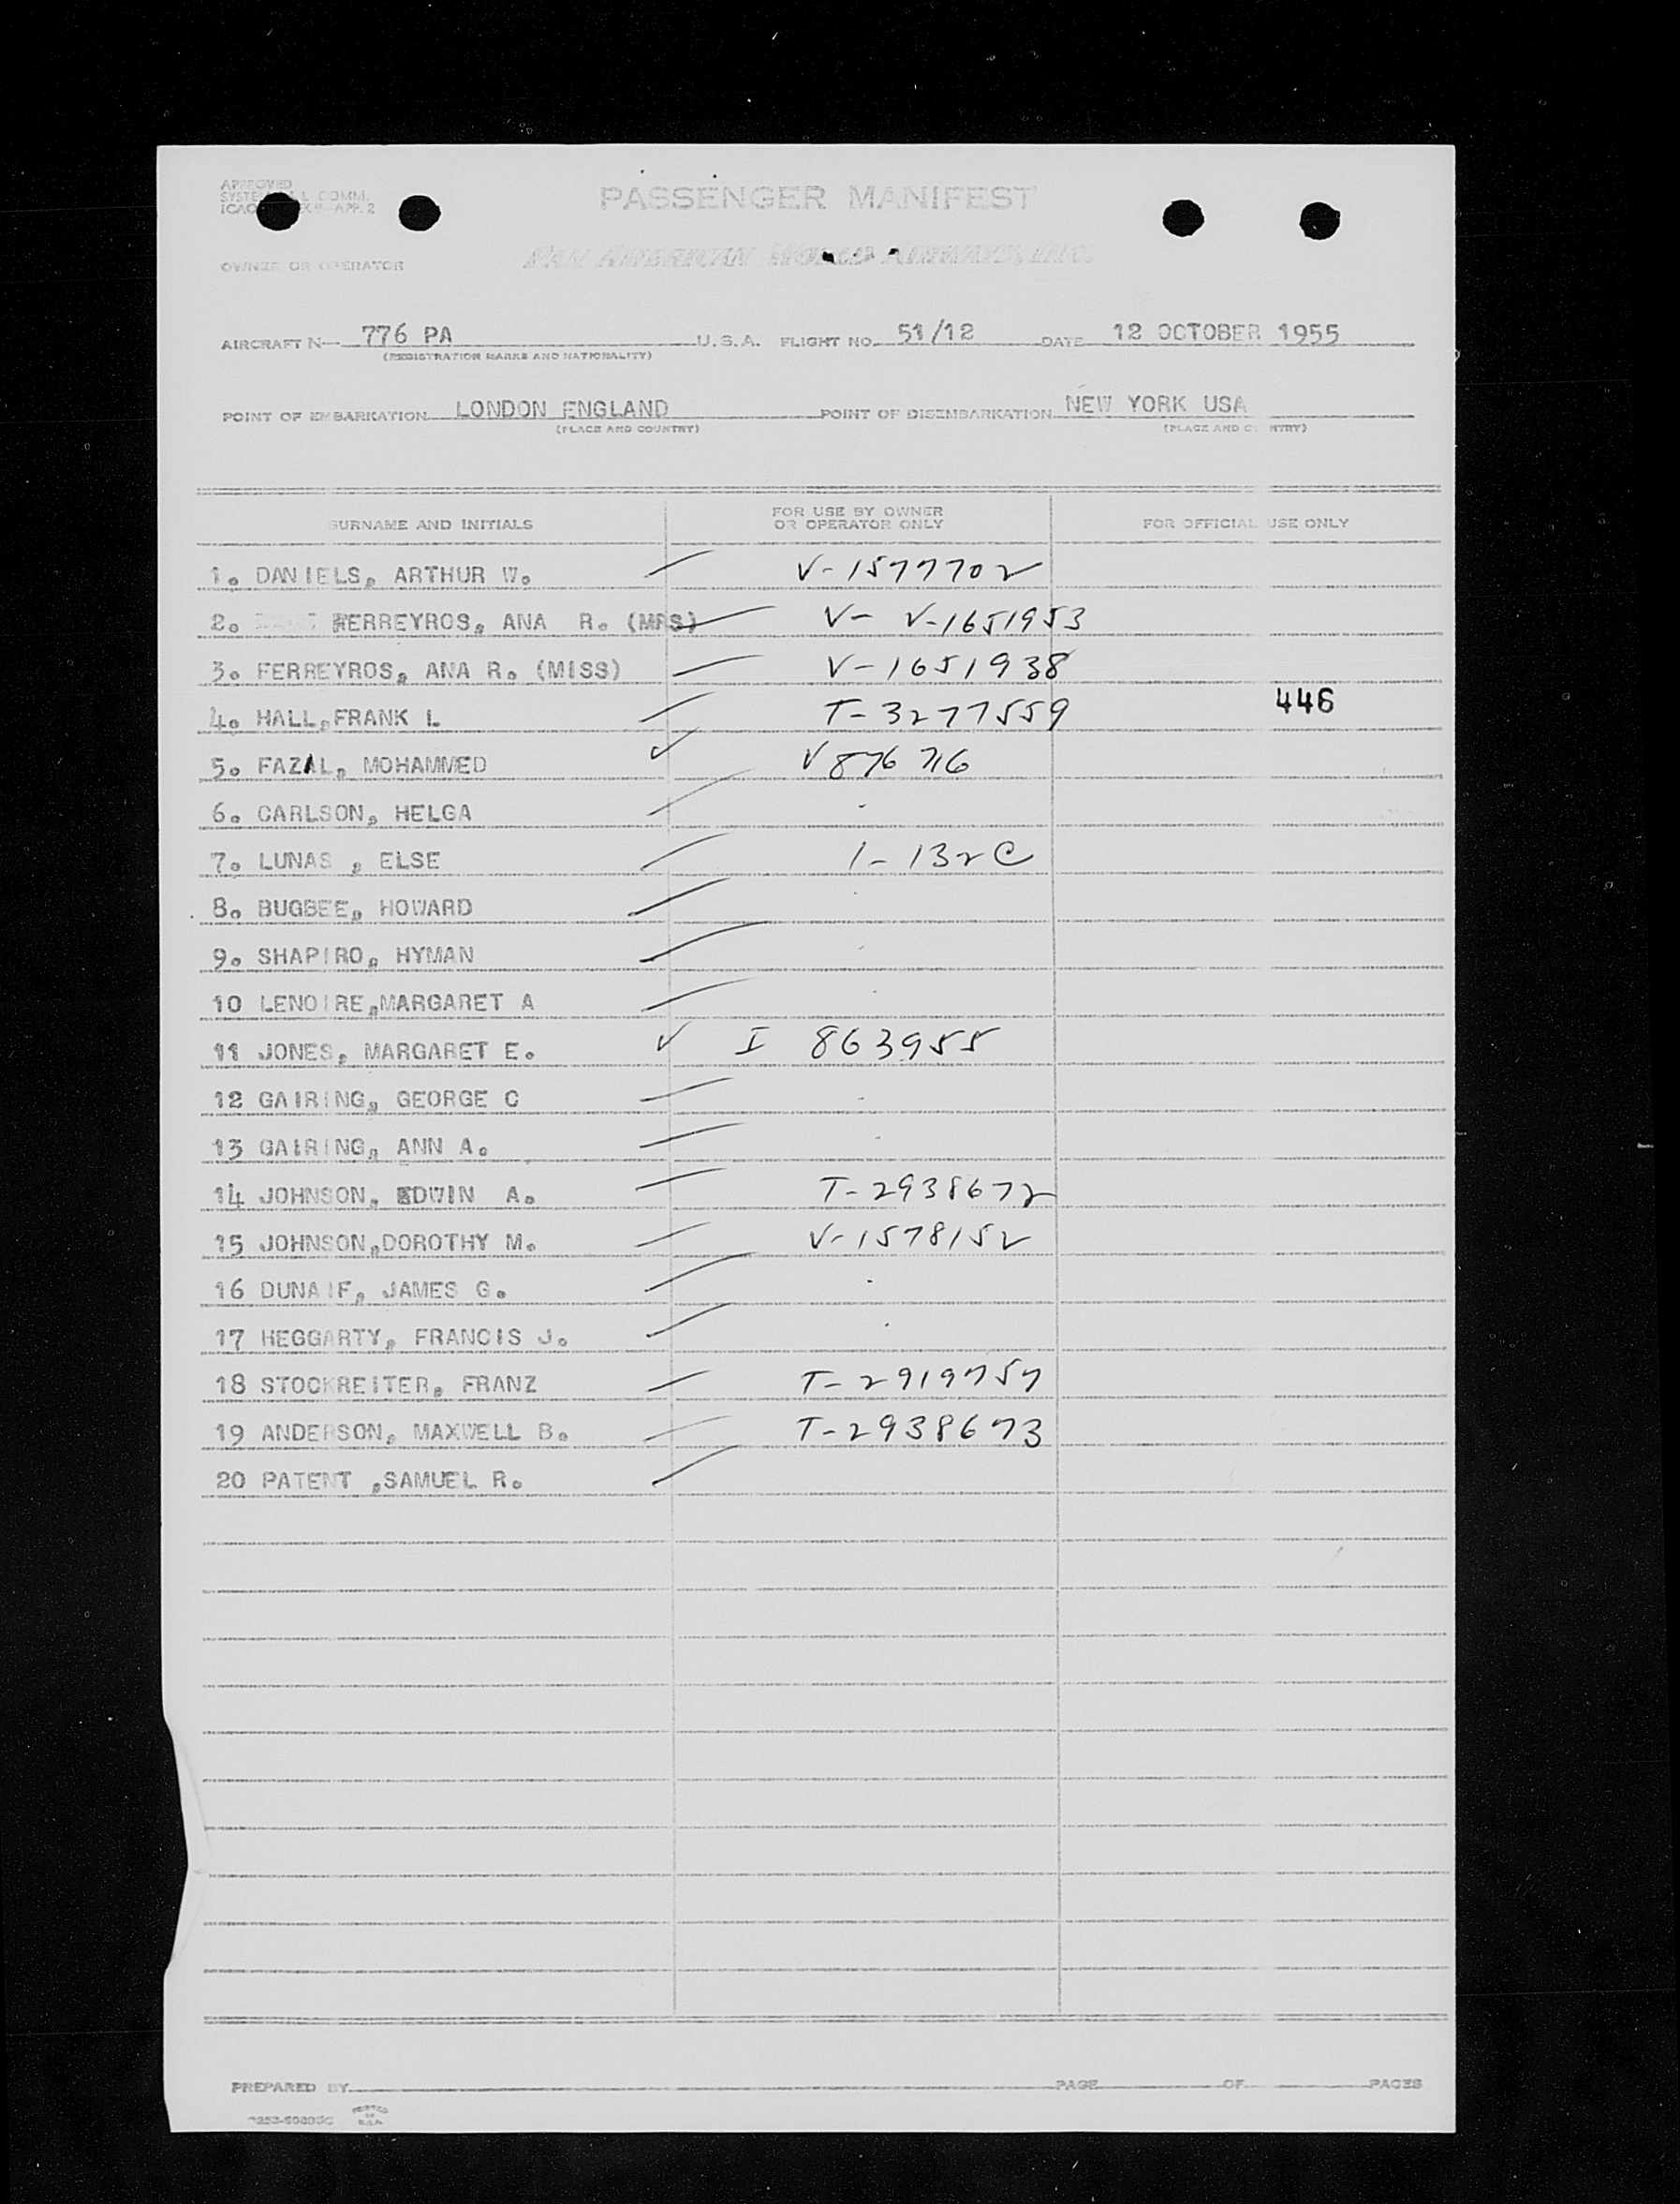 APPROVED
SYSTE L COMM.
ICAO APP. 2
PASSENGER MANIFEST
OWNER OR OPERATOR PAN AMERICAN WORLD AIRWAYS, INC.
AIRCRAFT N— 776 PA U.S.A. FLIGHT NO. 51/12 DATE 12 OCTOBER 1955
(REGISTRATION MARKS AND NATIONALITY)
POINT OF EMBARKATION LONDON ENGLAND POINT OF DISEMBARKATION NEW YORK USA
(PLACE AND COUNTRY) (PLACE AND C NTRY)
SURNAME AND INITIALS FOR USE BY OWNER OR OPERATOR ONLY FOR OFFICIAL USE ONLY
1. DANIELS, ARTHUR W. V-1577702
2. FERREYROS, ANA R. (MRS) V- V-1651953
3. FERREYROS, ANA R. (MISS) V-1651938
4. HALL,FRANK L T-3277559 446
5. FAZAL, MOHAMMED ✓ V876716
6. CARLSON, HELGA
7. LUNAS , ELSE 1-132C
8. BUGBEE, HOWARD
9. SHAPIRO, HYMAN
10 LENOIRE,MARGARET A
11 JONES, MARGARET E. ✓ I 863955
12 GAIRING, GEORGE C
13 GAIRING, ANN A.
14 JOHNSON, EDWIN A. T-2938672
15 JOHNSON,DOROTHY M. V-1578152
16 DUNAIF, JAMES G.
17 HEGGARTY, FRANCIS J.
18 STOCKREITER, FRANZ T-2919757
19 ANDERSON, MAXWELL B. T-2938673
20 PATENT ,SAMUEL R.
PREPARED BY PAGE OF PAGES
PRINTED
IN
U.S.A.